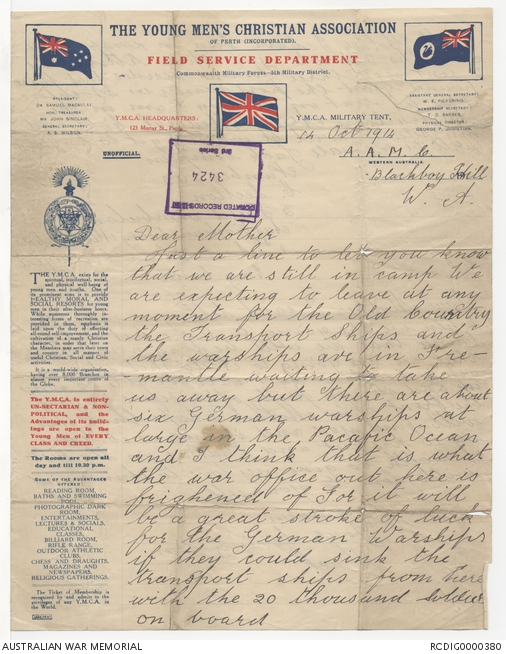 THE YOUNG MEN'S CHRISTIAN ASSOCIATION
OF PERTH (INCORPORATED).
FIELD SERVICE DEPARTMENT
Commonwealth Military Forces—5th Military District.
PRESIDENT:
DR. SAMUEL
HON. TREASURER
MR. JOHN SINCLAIR
GENERAL SECRETARY:
A. S. WILSON
ASSISTANT GENERAL SECRETARY:
W. E. PICKERING
MEMBERSHIP SECRETARY
T. D. BARBER
PHYSICAL DIRECTOR:
GEORGE P. JOHNSTON
Y.M.C.A. HEADQUARTERS:
121 Murray St., Perth
Y.M.C.A. MILITARY TENT,
UNOFFICIAL.
14 Oct 1914
A. A. M. C.
WESTERN AUSTRALIA
Blackboy Hill
W. A.
DONATED RECORDS LIST
3424
3rd Series
Dear Mother
Just a line to let you know
that we are still in camp We
are expecting to leave at any
moment for the Old Country
the Transport Ships and
the warships are in Fre-
mantle waiting to take
us away but there are about
six German warships at
large in the Pacafic Ocean
and I think that is what
the war office out here is
frighened of For it will
be a great stroke of luck
for the German Warships
if they could sink the
transport ships from here
with the 20 thousand soldier
on board
THE Y.M.C.A. exists for the
spiritual, intellectual, social,
and physical well-being of
young men and youths. One of
its prominent aims is to provide
HEALTHY MORAL AND
SOCIAL RESORTS for young
men in their after-business hours.
Whilst numerous thoroughly in-
teresting forms of recreation are
provided in them, emphasis is
laid upon the duty of effecting
all-round self-improvement, and the
cultivation of a manly Christian
character, in order that later on
the Members may serve their town
and country in all manner of
useful Christian, Social and Civic
activities.
It is a world-wide organisation,
having over 8,000 Branches in
almost every important centre of
the Globe.
The Y.M.C.A. is entirely
UN-SECTARIAN & NON-
POLITICAL, and the
Advantages of its build-
ings are open to the
Young Men of EVERY
CLASS AND CREED.
The Rooms are open all
day and till 10.30 p.m.
SOME OF THE ADVANTAGES
OFFERED:
READING ROOM,
BATHS AND SWIMMING
POOL,
PHOTOGRAPHIC DARK
ROOM,
ENTERTAINMENTS,
LECTURES & SOCIALS,
EDUCATIONAL
CLASSES,
BILLIARD ROOM,
RIFLE RANGE,
OUTDOOR ATHLETIC
CLUBS,
CHESS AND DRAUGHTS,
MAGAZINES AND
NEWSPAPERS,
RELIGIOUS GATHERINGS.
The Ticket of Membership is
recognised by and admits to the
privileges of any Y.M.C.A. in
the World.
AUSTRALIAN WAR MEMORIAL
RCDIG0000380